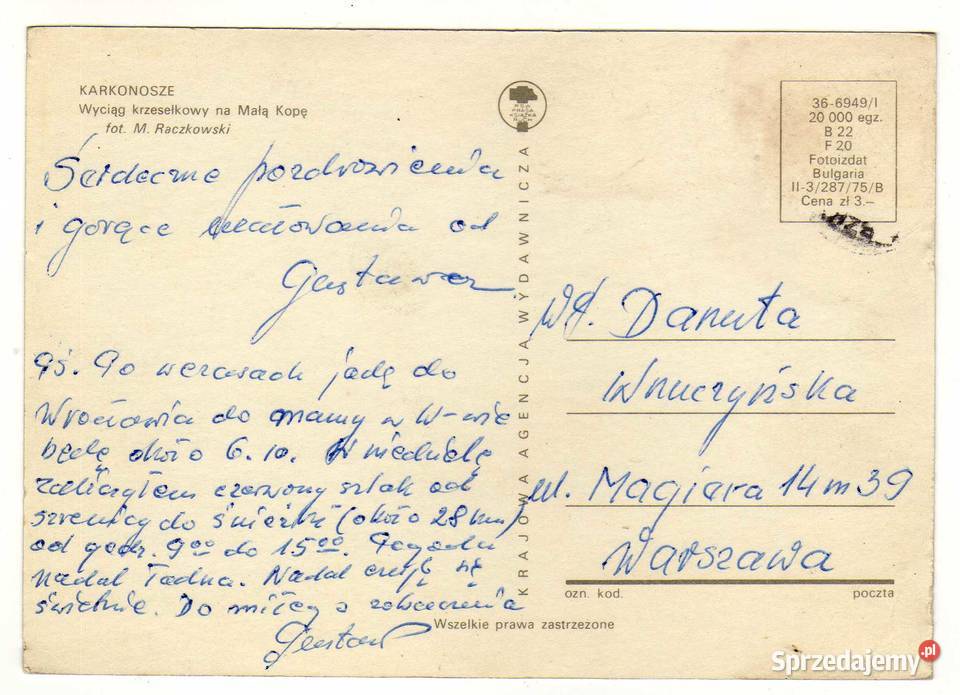 KARKONOSZE
Wyciąg krzesełkowy na Małą Kopę
fot. M. Raczkowski
Serdeczne pozdrowienia
i gorące ucałowania od
Gustawa
PS. Po wczasach jadę do
Wrocławia do mamy w W-wie
będę około 6.10. W niedzielę
zaliczyłem czerwony szlak od
Szrenicy do Śnieżki (około 28 km)
od godz. 900 do 1500. Pogoda
nadal ładna. Nadal czuję się
świetnie. Do miłego zobaczenia
Gustaw
KRAJOWA AGENCJA WYDAWNICZA
RSW
PRASA
KSIĄŻKA
RUCH
36-6949/I
20 000 egz.
B 22
F 20
Fotoizdat
Bulgaria
II-3/287/75/B
Cena zł 3.–
Danuta
Wnuczyńska
ul. Magiera 14 m 39
Warszawa
ozn. kod. poczta
Wszelkie prawa zastrzeżone
Sprzedajemy.pl